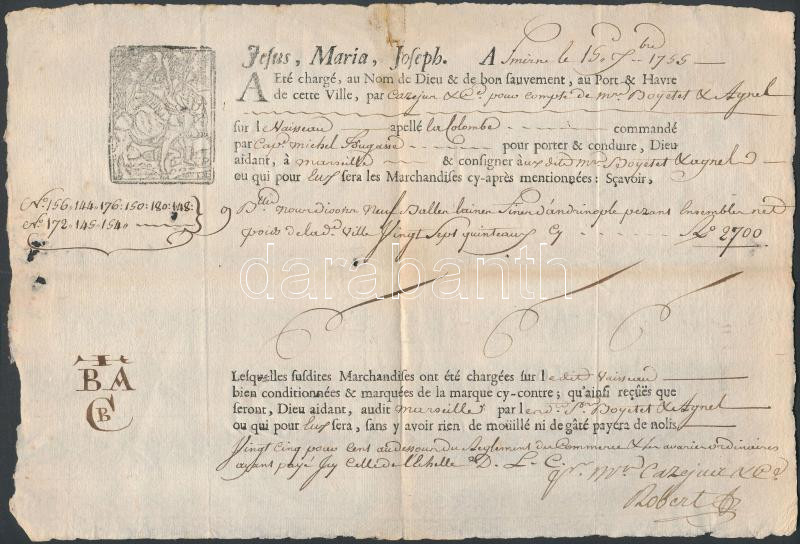 Jesus, Maria, Joseph. A Smirne le 15. 7bre 1755
A Eté chargé, au Nom de Dieu & de bon sauvement, au Port & Havre
de cette Ville, par Cazejux & Ce. pour compte de Mrs. Boyetet & Aynel
sur le Vaisseau apellé la Colombe commandé
par Cape. Michel Fugasse pour porter & conduire, Dieu
aidant, à Marseille & consigner aux dits Mrs. Boyetet & Aynel
ou qui pour Eux sera les Marchandises cy-après mentionnées: Sçavoir,
No. 156: 144: 176: 150: 180: 148:
No. 172: 145: 154:
9 Blles Neuf Balles laines fines d'andrinople pezant Ensembles net
poids de lad. Ville Vingt Sept quinteaux Cy Lo 2700
darabanth
T
BA
CB
Lesquelles susdites Marchandises ont été chargées sur ledit Vaisseau
bien conditionnées & marquées de la marque cy-contre; qu'ainsi reçûës que
seront, Dieu aidant, audit Marseille par lesd. Srs Boyetet & Aynel
ou qui pour Eux sera, sans y avoir rien de moüillé ni de gâté payera de nolis
Vingt Cinq pour Cent au dessour du Reglement du Commerce & les avaries ordinaires
ayant payé Icy Celle de l'Echelle D. L. C.
pr. Mrs. Cazejux & Ce.
Robert